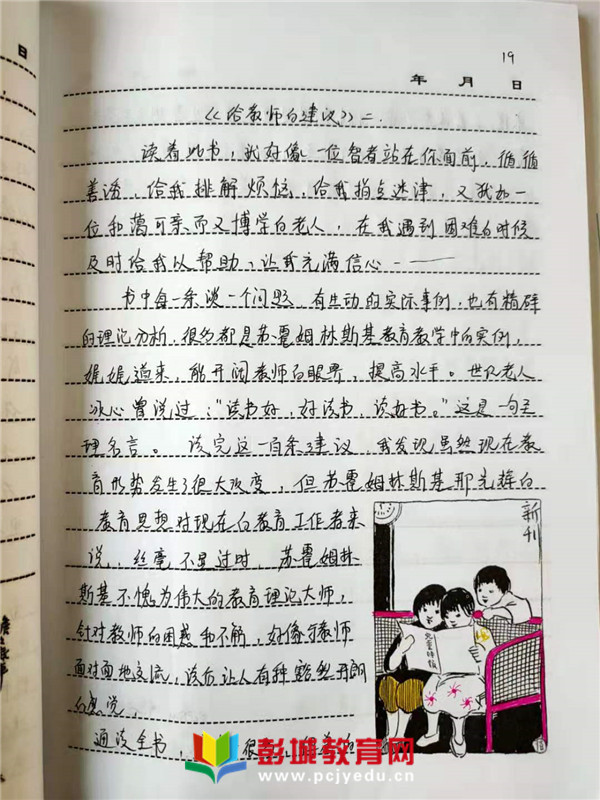 19
年 月 日
《给教师的建议》二.
读着此书，我好像一位智者站在你面前，循循
善诱，给我排解烦忧，给我指点迷津，又我如一
位和蔼可亲而又博学的老人，在我遇到困难的时候
及时给我以帮助，让我充满信心——
书中每一条谈一个问题，有生动的实际事例，也有精辟
的理论分析，很多都是苏霍姆林斯基教育教学中的实例，
娓娓道来，能开阔教师的眼界，提高水平。世纪老人
冰心曾说过："读书好，好读书，读好书。"这是一句至
理名言。读完这一百条建议，我发现虽然现在教
育形势发生了很大改变，但苏霍姆林斯基那光辉的
教育思想对现在的教育工作者来
说，丝毫不显过时，苏霍姆林
斯基不愧为伟大的教育理论大师，
针对教师的困惑和不解，好像与教师
面对面地交流，读后让人有种豁然开朗
的感觉，
通读全书，很
新刊
日
彭城教育网
www.pcjyedu.cn